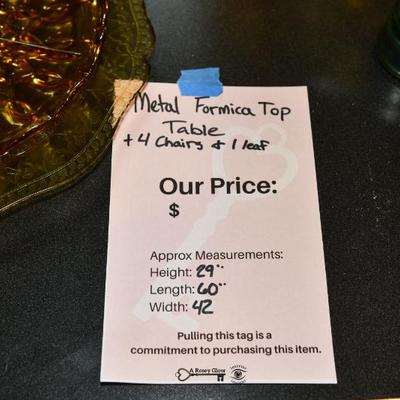 Metal Formica Top
Table
+ 4 Chairs & 1 leaf
Our Price:
$
Approx Measurements:
Height: 29"
Length: 60"
Width: 42
Pulling this tag is a
commitment to purchasing this item.
A Rosey Glow